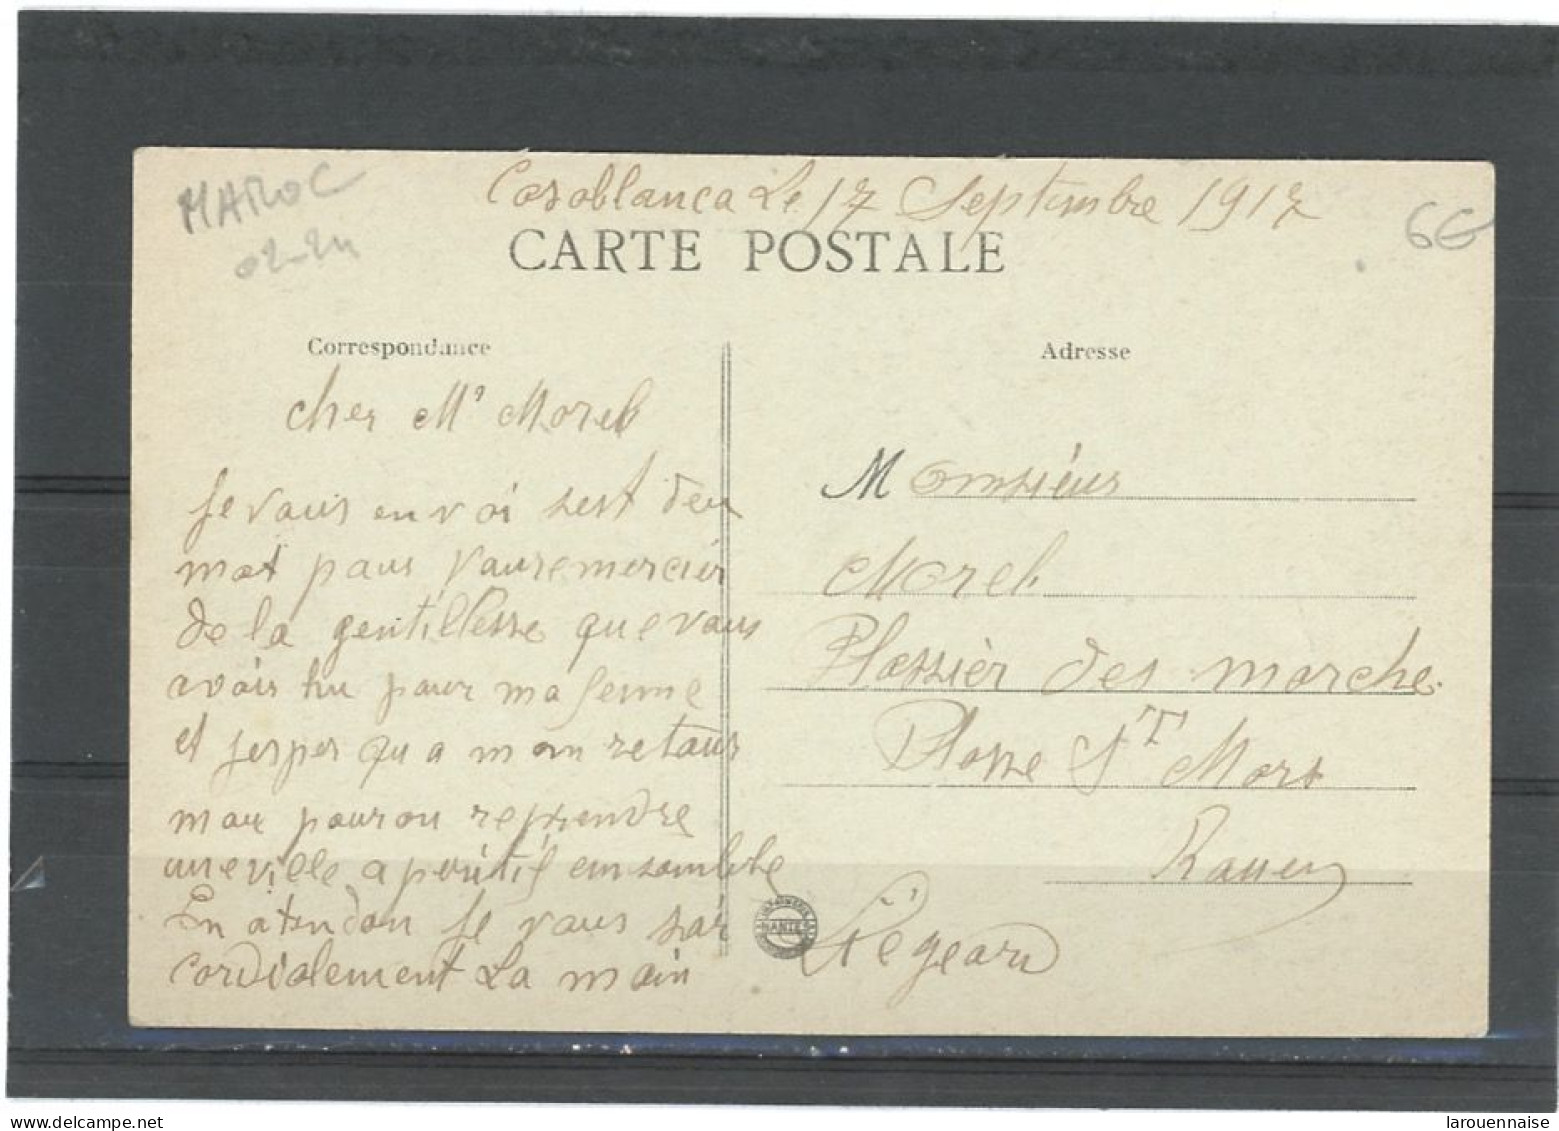 MAROC
02-24
6€
Casablanca Le 17 Septembre 1917
CARTE POSTALE
Correspondance
Adresse
cher Mr Morel
Je vous envoi sest deu
mot pour vouremercier
de la gentillesse que vous
avois hu pour ma femme
et jesper qu a mon retour
nou pouron reprendre
une ville apéritif emsemble
En atendan je vous sair
cordialement La main
Monsieur
Morel
Plassier des marche
Plasse St Mars
Rouen
Liégeard
NANTES
larouennaise
delcampe.net